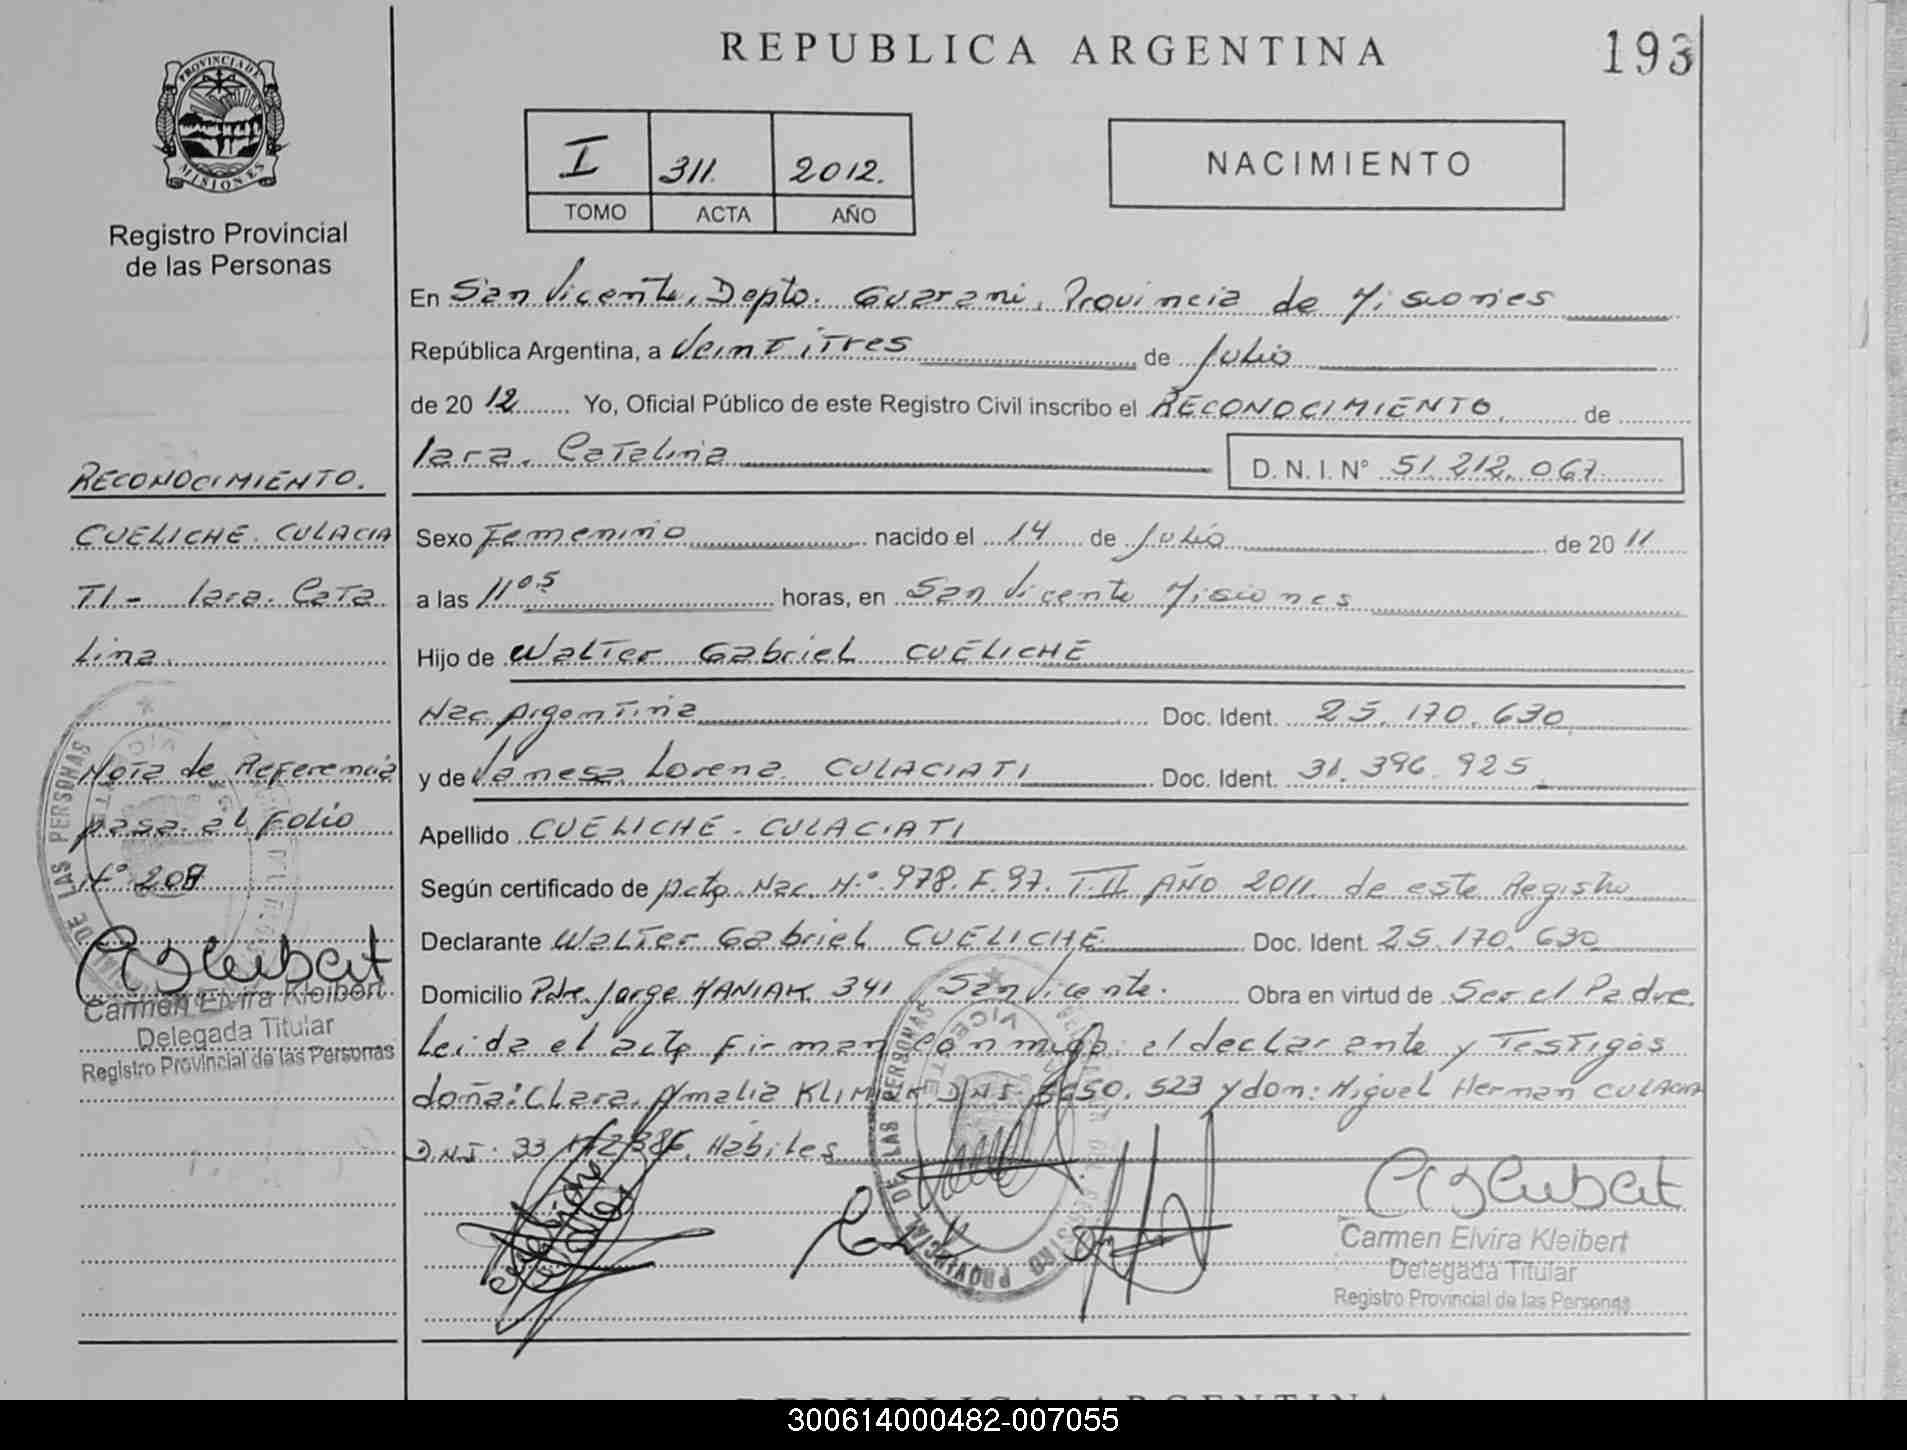 REPUBLICA ARGENTINA
193
PROVINCIA DE
MISIONES
Registro Provincial
de las Personas
I 311. 2012.
TOMO ACTA AÑO
NACIMIENTO
En San Vicente, Depto. Guarani, Provincia de Misiones
República Argentina, a Veintitres de Julio
de 2012 Yo, Oficial Público de este Registro Civil inscribo el RECONOCIMIENTO. de
Iara. Catalina D. N. I. N° 51.212.067.
Sexo Femenino nacido el 14 de Julio de 2011
a las 11 05 horas, en San Vicente Misiones
Hijo de Walter Gabriel CUELICHE
Nac. Argentina Doc. Ident. 25.170.630
y de Vanesa Lorena CULACIATI Doc. Ident. 31.396.925
Apellido CUELICHE - CULACIATI
Según certificado de Acta Nac. N.° 978. F. 97. T. II AÑO 2011 de este Registro
Declarante Walter Gabriel CUELICHE Doc. Ident. 25.170.630
Domicilio Pdre. Jorge MANIAK 341 San Vicente. Obra en virtud de Ser el Padre.
Leida el acta firman conmigo el declarante y Testigos
doña: Clara Amalia D.N.I. 523 y don: Miguel Hernan CULACIA
D.N.I: 33 Habiles
RECONOCIMIENTO.
CUELICHE. CULACIA
TI - Iara. Cata
lina.
Nota de Referencia
pasa al Folio
N° 208
Carmen Elvira Kleibert
Delegada Titular
Registro Provincial de las Personas
Carmen Elvira Kleibert
Delegada Titular
Registro Provincial de las Personas
REPUBLICA ARGENTINA
300614000482-007055